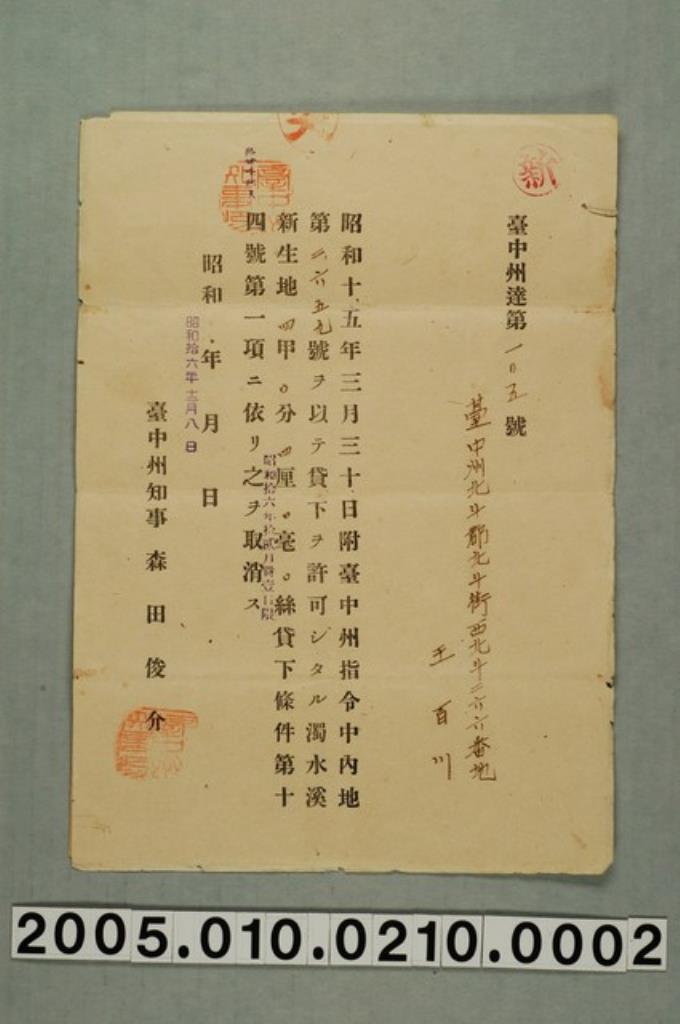 新
臺中州達第一〇五號
臺中州北斗郡北斗街西北斗二六六番地
王百川
昭和十五年三月三十日附臺中州指令中內地
第二六五九號ヲ以テ貸下ヲ許可シタル濁水溪
新生地四甲〇分四厘〇毫〇絲貸下條件第十
昭和拾六年拾貳月參壹日限
四號第一項ニ依リ之ヲ取消ス
昭和年月日
昭和拾六年十二月八日
臺中州知事森田俊介
2005.010.0210.0002